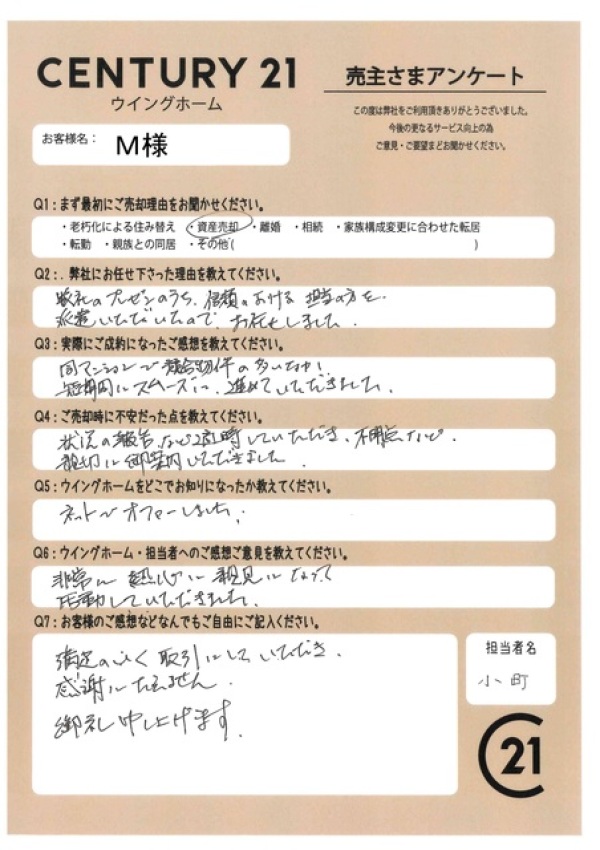 CENTURY 21
ウイングホーム
売主さまアンケート
この度は弊社をご利用頂きありがとうございました。
今後の更なるサービス向上の為
ご意見・ご要望までお聞かせください。
お客様名： M様
Q1：まず最初にご売却理由をお聞かせください。
・老朽化による住み替え ・資産売却 ・離婚 ・相続 ・家族構成変更に合わせた転居
・転勤 ・親族との同居 ・その他（ ）
Q2：．弊社にお任せ下さった理由を教えてください。
数社のプレゼンのうち、信頼のおける 担当の方を
派遣いただいたので、お任せしました。
Q3：実際にご成約になったご感想を教えてください。
同マンションで競合物件の多いなか！
短期間にスムーズに、進めていただきました。
Q4：ご売却時に不安だった点を教えてください。
状況の報告など適時していただき、不明点など、
親切に御案内いただきました
Q5：ウイングホームをどこでお知りになったか教えてください。
ネットでオファーしました。
Q6：ウイングホーム・担当者へのご感想ご意見を教えてください。
非常に 熱心に 親身になって
活動していただきました。
Q7：お客様のご感想などなんでもご自由にご記入ください。
満足のいく 取引にして いただき、
感謝にたえません。
御礼申し上げます。
担当者名
小町
21